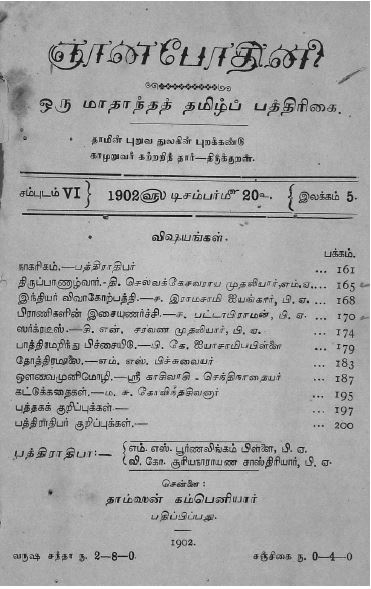 ஞானபோதினி
ஒரு மாதாந்தத் தமிழ்ப் பத்திரிகை.
தாமின் புறுவ துலகின் புறக்கண்டு
காமுறுவர் கற்றறிந் தார்—திருக்குறள்.
சம்புடம் VI } 1902 ௵ டிசம்பர்௴ 20௳ { இலக்கம் 5.
விஷயங்கள்.
பக்கம்.
நாகரிகம்.—பத்திராதிபர் ... 161
திருப்பாணாழ்வார்.-தி. செல்வக்கேசவராய முதலியார், எம்.ஏ.... 165
இந்தியர் விவாகோற்பத்தி.—ச. இராமசாமி ஐயங்கார், பி. ஏ. ... 168
பிராணிகளின் இசையுணர்ச்சி.— ச. பட்டாபிராமன், பி. ஏ. ... 170
ஸாக்ரடீஸ்.—சி. என். சரவண முதலியார், பி. ஏ. ... 174
பாத்திரமறிந்து பிச்சையிடு.—பி. கே. ஐயாசாமிபபிள்ளை ... 179
தோத்திரமாலை.—எம். எஸ். பிச்சுவையர் ... 183
ஔவைமுனிமொழி.—ஸ்ரீ காசிவாசி - செந்திநாதையர் ... 187
கட்டுக்கதைகள்.— ம. சு. கோவிந்தசிவனார் ... 195
புத்தகக் குறிப்புக்கள்.— ... 197
பத்திராதிபர் குறிப்புக்கள்.— ... 200
பத்திராதிபர்:— { எம். எஸ். பூர்ணலிங்கம் பிள்ளை, பி. ஏ.
வி. கோ. சூரியநாராயண சாஸ்திரியார், பி. ஏ.
சென்னை:
தாம்ஸன் கம்பெனியார்
பதிப்பிப்பது.
1902.
வருஷ சந்தா ரூ. 2-8-0. சஞ்சிகை ரூ. 0-4-0